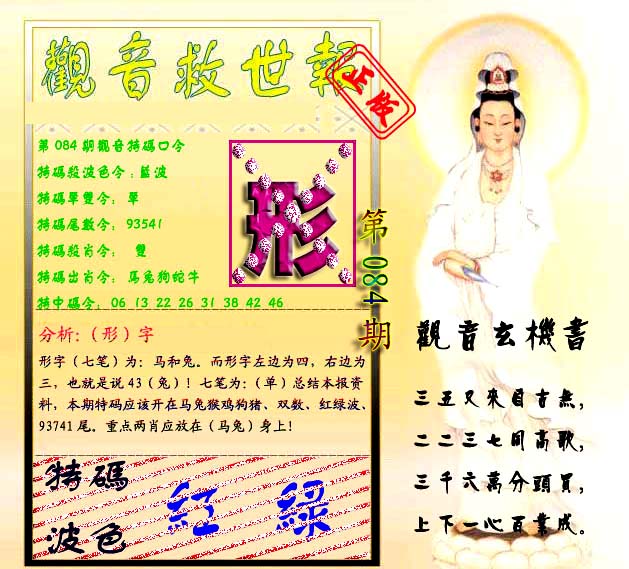 觀音救世報
正版
第 084 期觀音特碼口令
特碼殺波色令：藍波
特碼單雙令： 單
特碼尾數令： 93541
特碼殺肖令： 雙
特碼出肖令： 馬兔狗蛇牛
特中碼令： 06 13 22 26 31 38 42 46
形
第 084 期
分析:（形）字
形字（七笔）为：马和兔。而形字左边为四，右边为
三，也就是说 43（兔）！七笔为：（单）总结本报资
料，本期特码应该开在马兔猴鸡狗猪、双数、红绿波、
93741 尾。重点两肖应放在（马兔）身上！
特碼
波色
紅 綠
觀音玄機書
三五又來自古無，
二二三七同高歌，
三千六萬分頭買，
上下一心百業成。